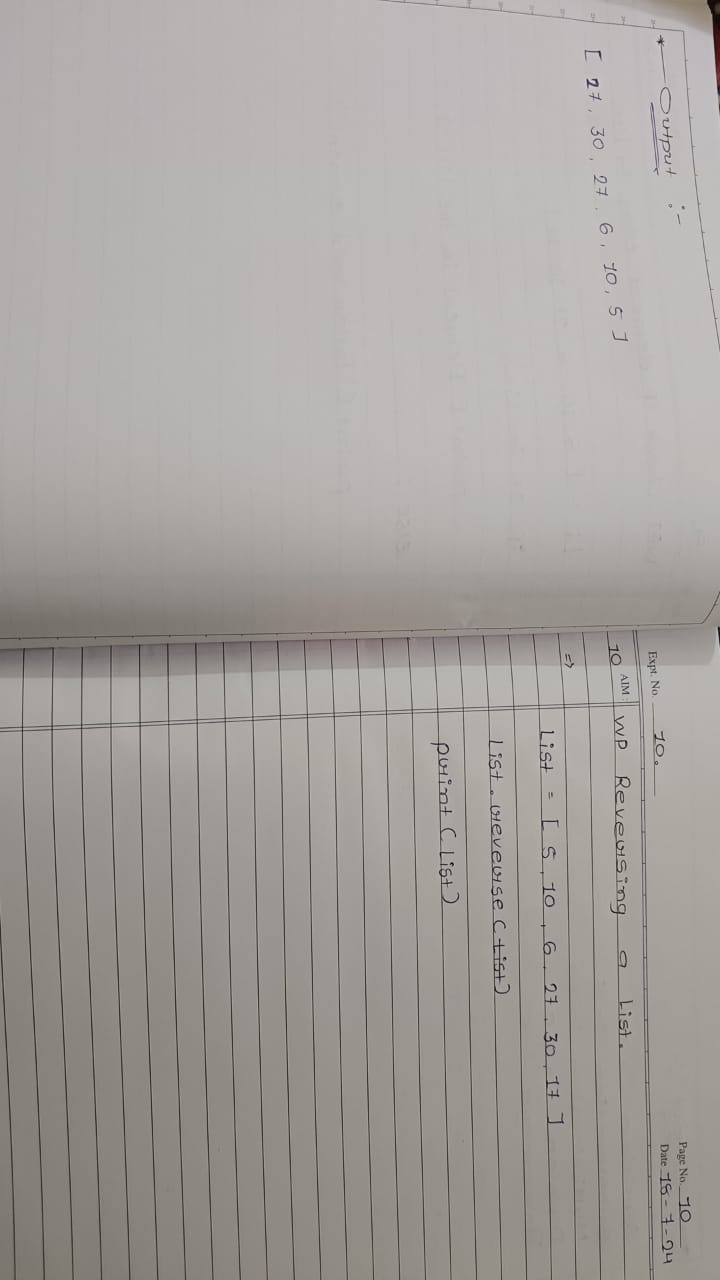 * Output :-
[ 27, 30, 27, 6, 10, 5 ]
Expt. No. 10.
Page No. 10
Date 18-7-24
10 AIM: WP Reversing a List.
=> List = [ 5, 10, 6, 27, 30, 17 ]
List.reverse( List)
print ( List)